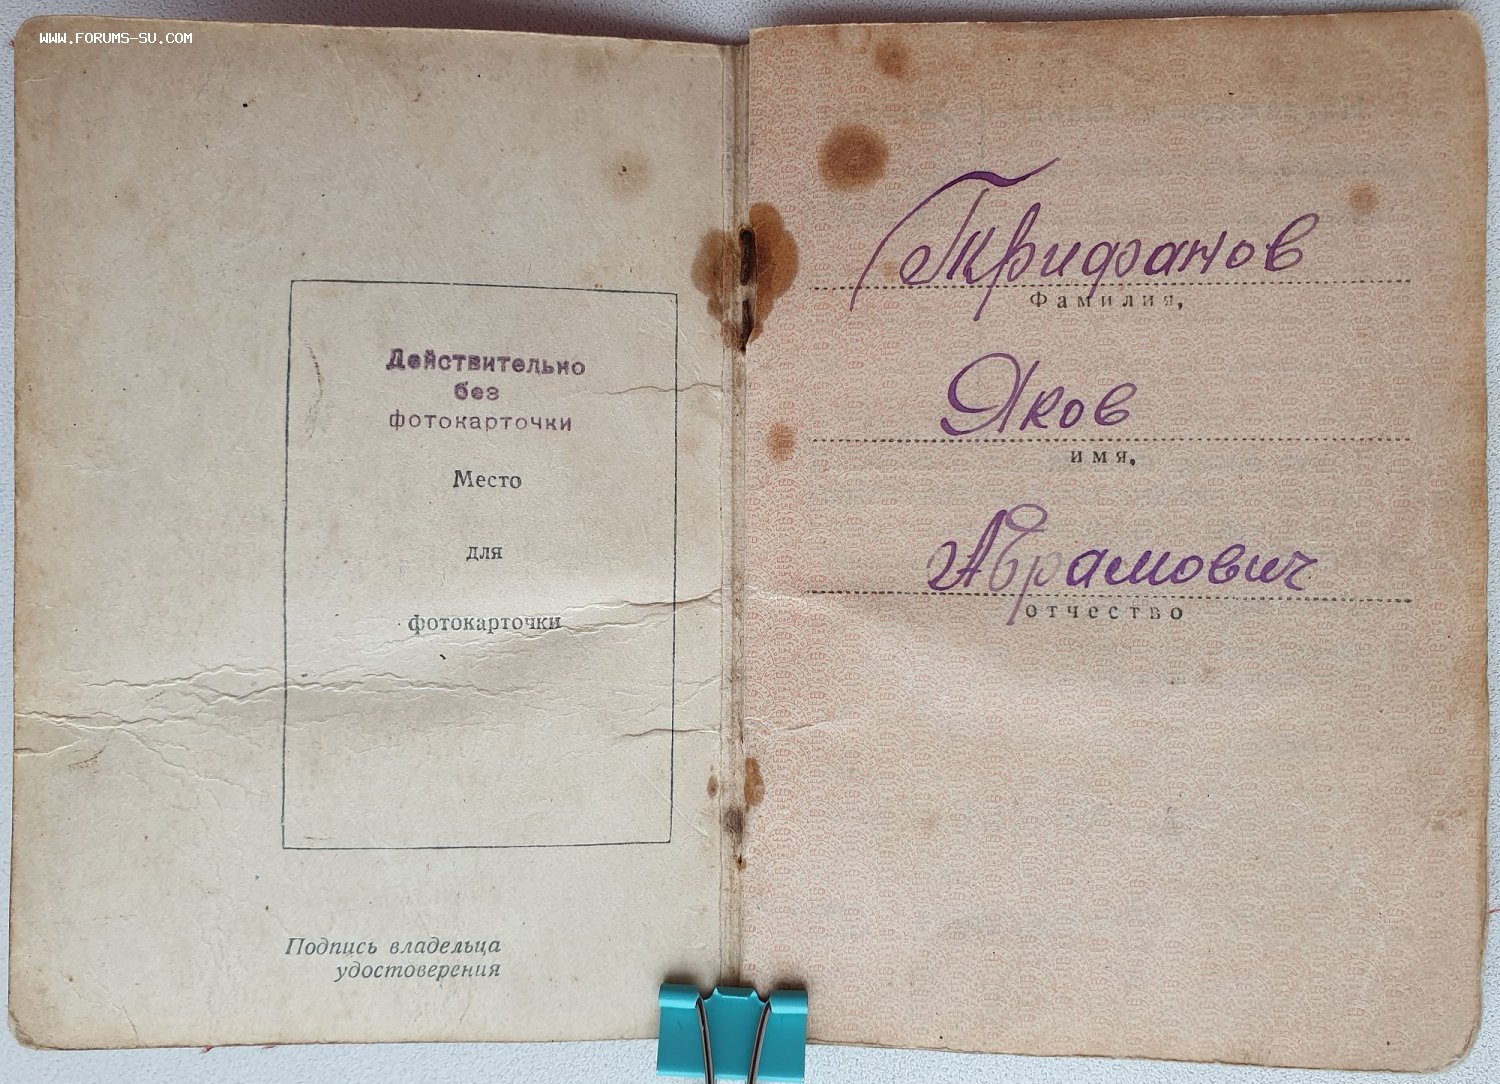 WWW.FORUMS-SU.COM
Действительно
без
фотокарточки
Место
для
фотокарточки
Подпись владельца
удостоверения
Трифанов
Фамилия,
Яков
имя,
Абрамович
отчество